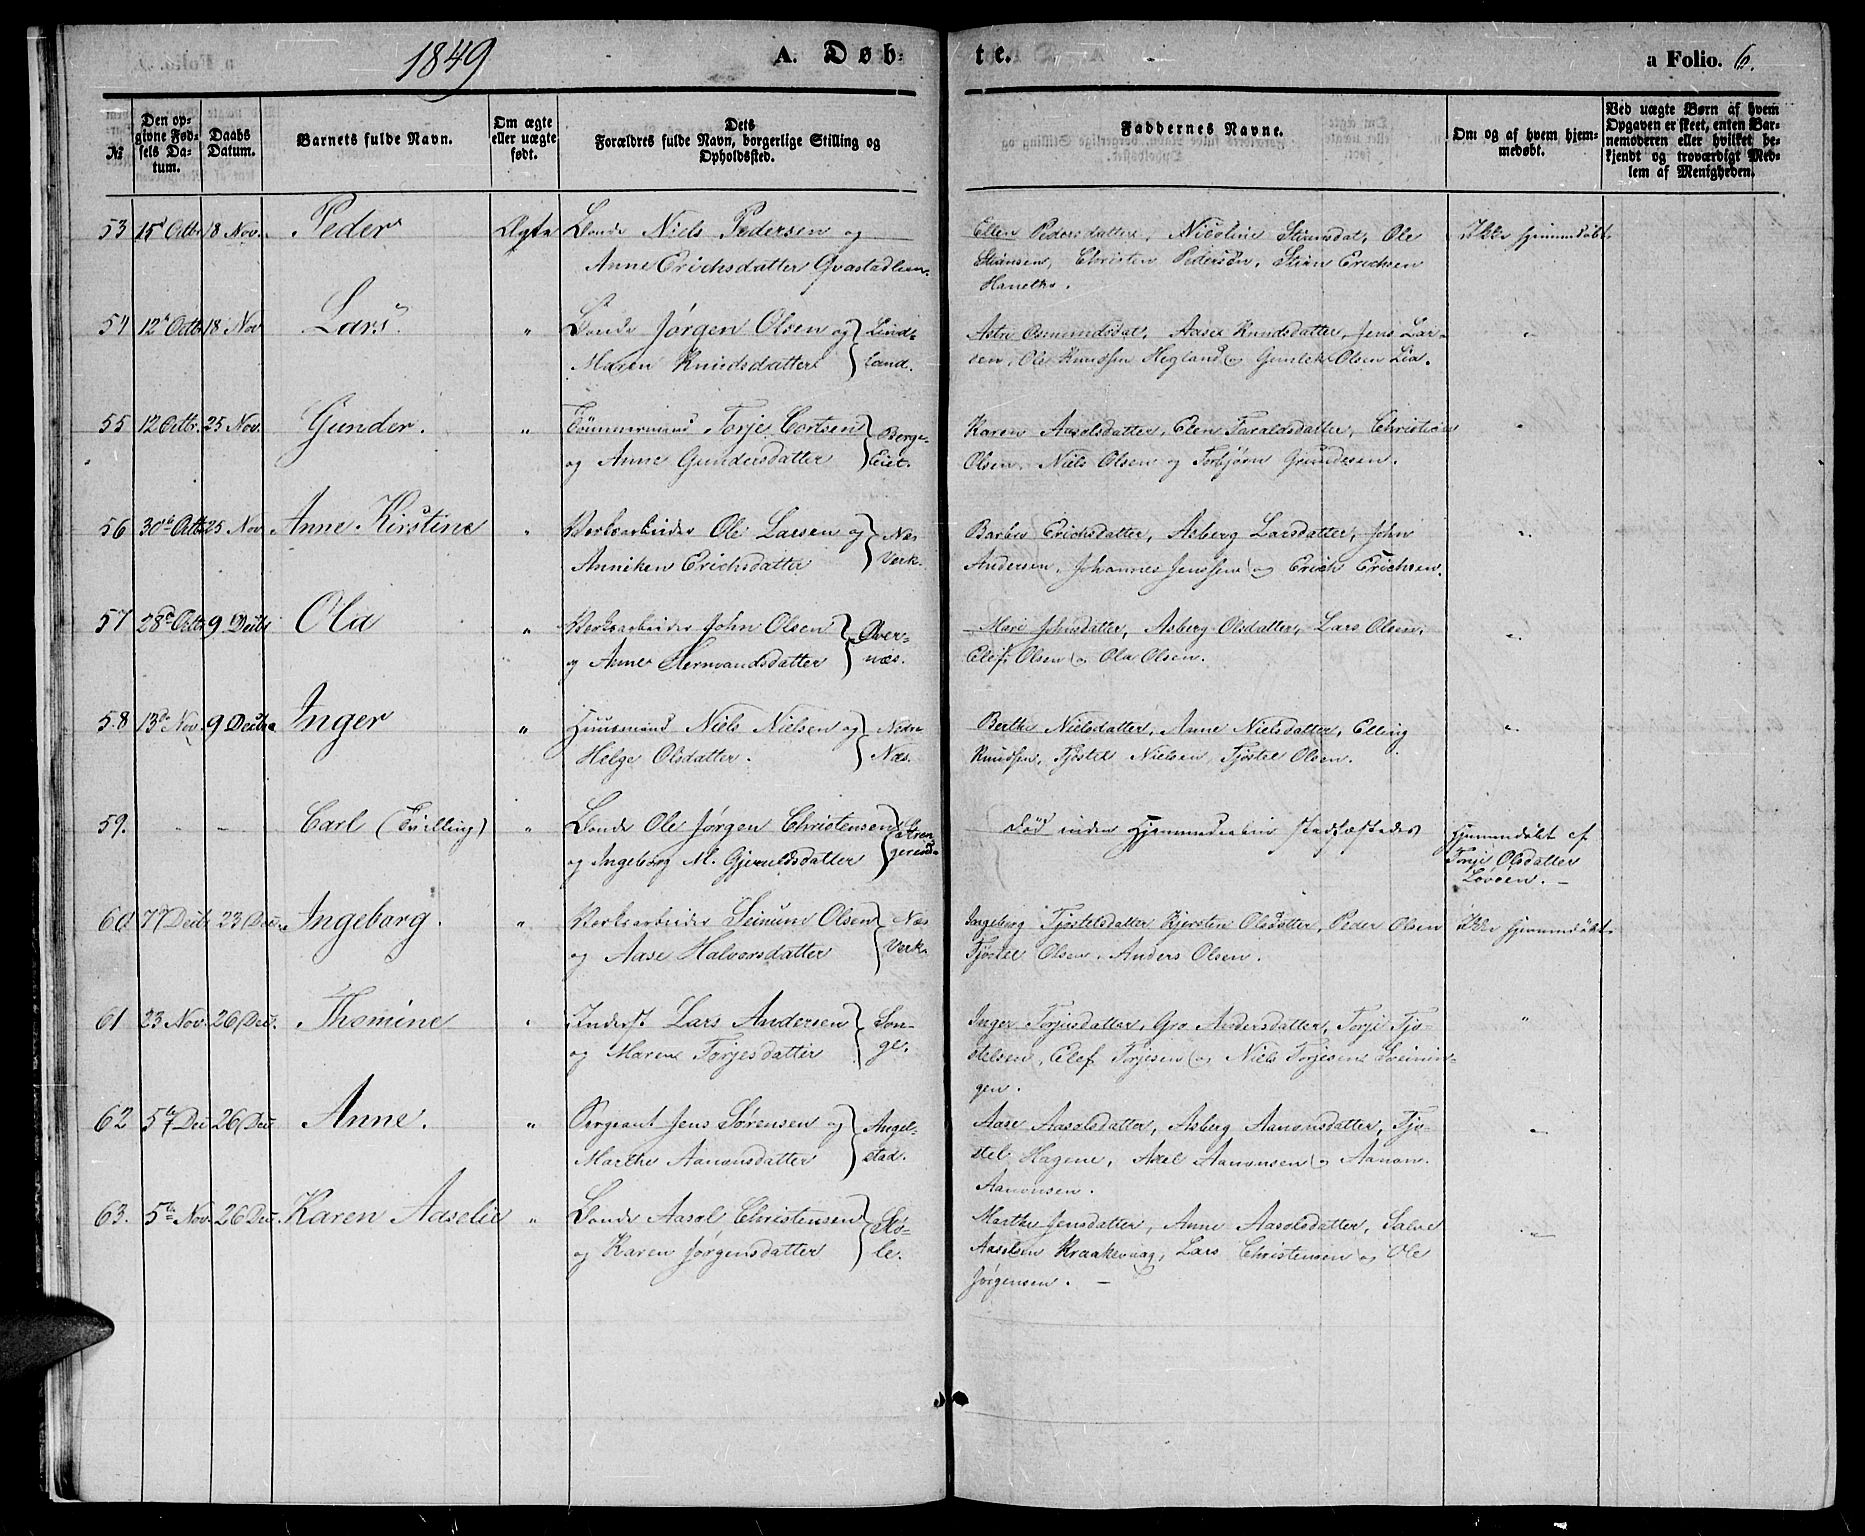 1849
A. Døb-
te.
a Folio. 6.
№
Den op-
givne Fød-
sels Da-
tum.
Daabs
Datum.
Barnets fulde Navn.
Om ægte
eller uægte
født.
Dets
Forældres fulde Navn, borgerlige Stilling og
Opholdssted.
Faddernes Navne.
Om og af hvem hjem-
medøbt.
Ved uægte Børn af hvem
Opgaven er skeet, enten Bar-
nemoderen eller hvilket be-
kjendt og troværdigt Med-
lem af Menigheden.
53 15d Octbr 18 Nov. Peder Ægte Bonde Niels Pedersen og
Anne Erichsdatter
Ellen Pedersdatter, Nicoline Stiansdat, Ole
Stiansen, Christen Pedersøn, Stian Erichsen
Ikke hjemmedøbt.
54 12te Octbr 18 Nov Lars " Bonde Jørgen Olsen og
Maren Knudsdatter
Lind-
land.
Astri Osmundsdat, Aase Knudsdatter, Jens Lar-
sen, Ole Knudsen Hegland og Gunleik Olsen Lia.
"
55 12 Octbr. 25 Nov. Gunder. " Tømmermand Torje Cortsen
og Anne Gundersdatter
Berge-
Eiet.
Karen Aasolsdatter, Elen Taraldsdatter, Christian
Olsen, Niels Olsen og Torbjørn Grundesen.
"
56 30te Octbr 25 Nov Anne Kirstine " Verksarbeider Ole Larsen og
Anniken Erichsdatter
Næs
Verk.
Barbro Erichsdatter, Asberg Larsdatter, John
Andersen, Johannes Jenssen og Erich Erichsen.
"
57 28de Octbr 9 Decbr Ola " Verksarbeider John Olsen
og Anne Hermandsdatter
Øver-
næs.
Mari Johnsdatter, Asberg Olsdatter, Lars Olsen,
Elef Olsen og Ola Olsen.
"
58 13de Nov. 9 Decbr Inger " Huusmand Niels Nielsen og
Helge Olsdatter.
Nedre
Næs.
Berthe Nielsdatter, Anne Nielsdatter, Elling
Knudsen, Tjøstel Nielsen, Tjøstel Olsen.
"
59. " " Carl (Tvilling) " Bonde Ole Jørgen Christensen
og Ingeborg M. Gjeruldsdatter
Død inden Hjemmedaaben stadfæstedes
Hjemmedøbt af
Torje Olsdatter
60 7de Decbr 23 Dec. Ingeborg. " Verksarbeider Seinum Olsen
og Aase Halvorsdatter
Næs
Verk.
Ingeborg Tjøstelsdatter Kjersten Olsdatter, Peder Olsen
Tjøstel Olsen, Anders Olsen.
Ikke hjemmedøbt.
61 23 Nov. 26 Dec. Thomine " Inderst Lars Andersen
og Maren Torjesdatter
Son-
ge.
Inger Torjesdatter, Gro Andersdatter, Torje Tjø-
stelsen, Elef Torjesen og Niels Torjesen
gen.
"
62 5te Dec 26 Dec. Anne. " Sergeant Jens Sørensen og
Marthe Aanonsdatter
Angel-
stad.
Aase Aasolsdatter, Asberg Aanonsdatter, Tjø-
stel Hagene, Axel Aanonsen og Aanon
Aanonsen.
"
63. 5te Nov. 26 Dec. Karen Aaselie " Bonde Aasol Christensen
og Karen Jørgensdatter
Skø-
le.
Marthe Jensdatter, Anne Aasolsdatter, Salve
Aaselsen Kraakevaag, Lars Christensen og Ole
Jørgensen.
"